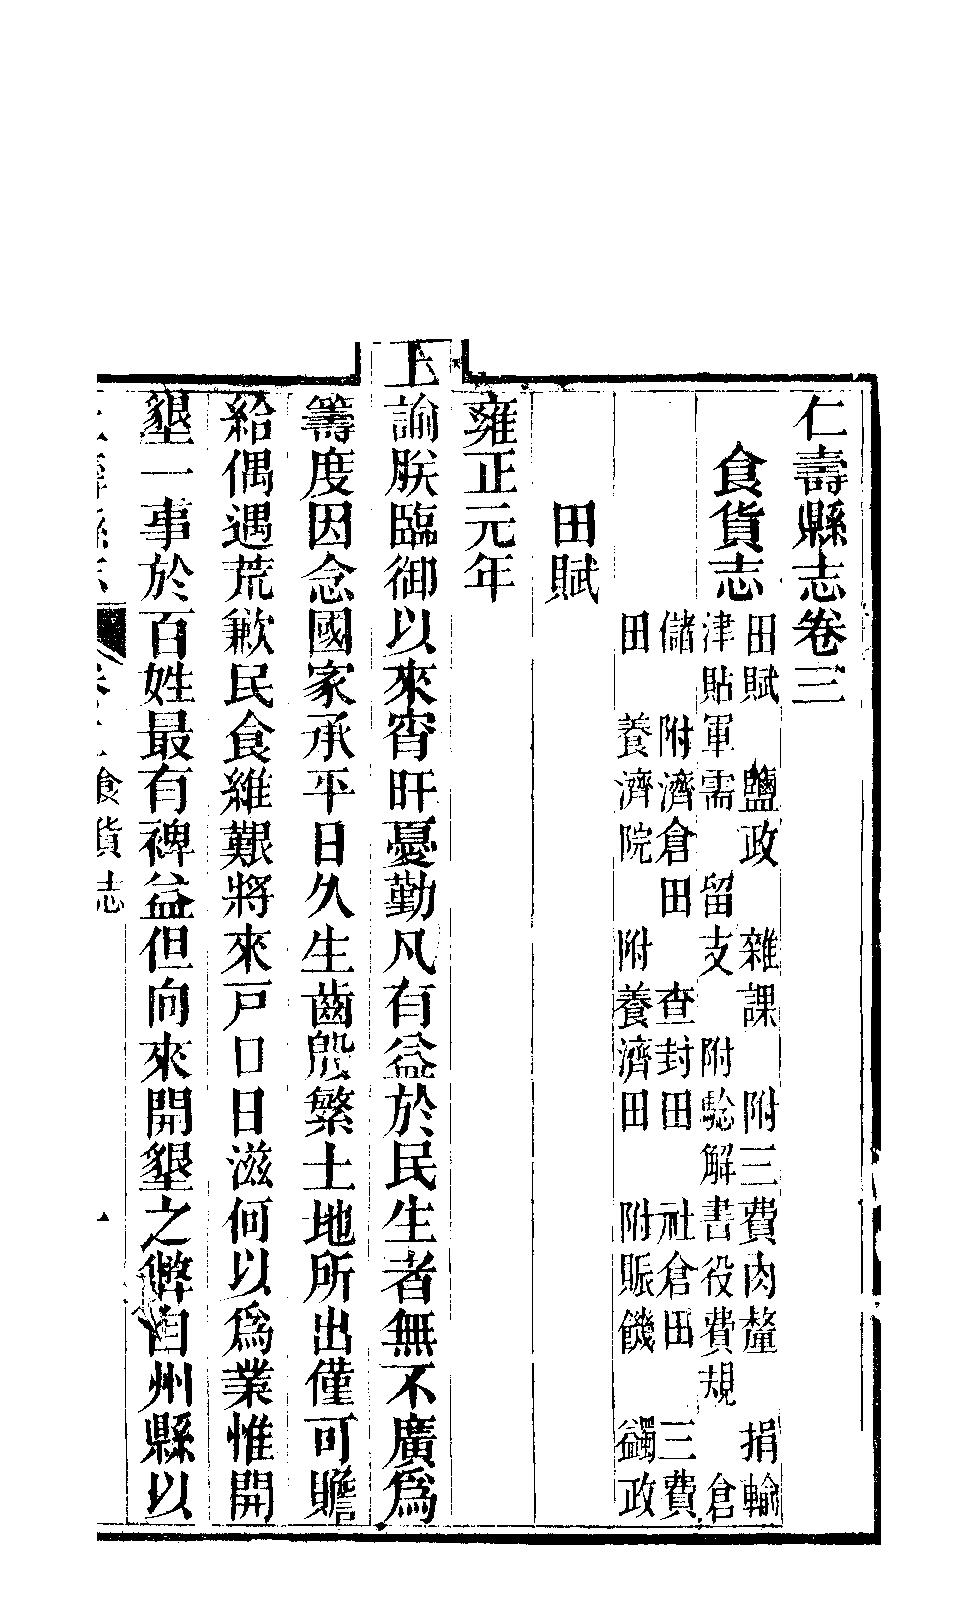 仁壽縣志卷三
食貨志
田賦 鹽政 雜課 附三費肉釐 捐輸
津貼軍需 留支 附騐解書役費規 倉
儲 附濟倉田 查封田 社倉田 三費
田 養濟院 附養濟田 附賑饑 蠲政
田賦
雍正元年
上諭朕臨御以來宵旰憂勤凡有益於民生者無不廣爲
籌度因念國家承平日久生齒殷繁土地所出僅可贍
給偶遇荒歉民食維艱將來戸口日滋何以爲業惟開
墾一事於百姓最有裨益但向來開墾之弊自州縣以
食貨志